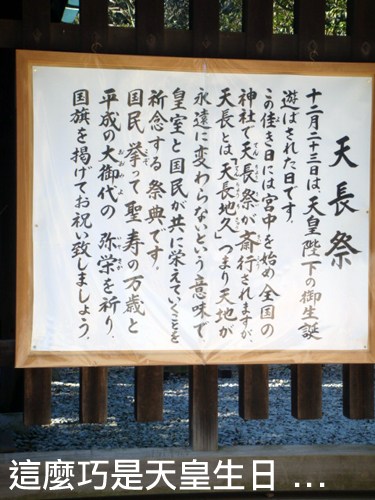 天長祭
十二月二十三日は、天皇陛下の御生誕
遊ばされた日です。
この佳き日には宮中を始め全国の
神社で天長祭が斎行されますが、
天長とは「天長地久」つまり天地が
永遠に変わらないという意味で、
皇室と国民が共に栄えていくことを
祈念する祭典です。
国民挙って聖寿の万歳と
平成の大御代の弥栄を祈り、
国旗を掲げてお祝い致しましょう。
這麼巧是天皇生日 ...